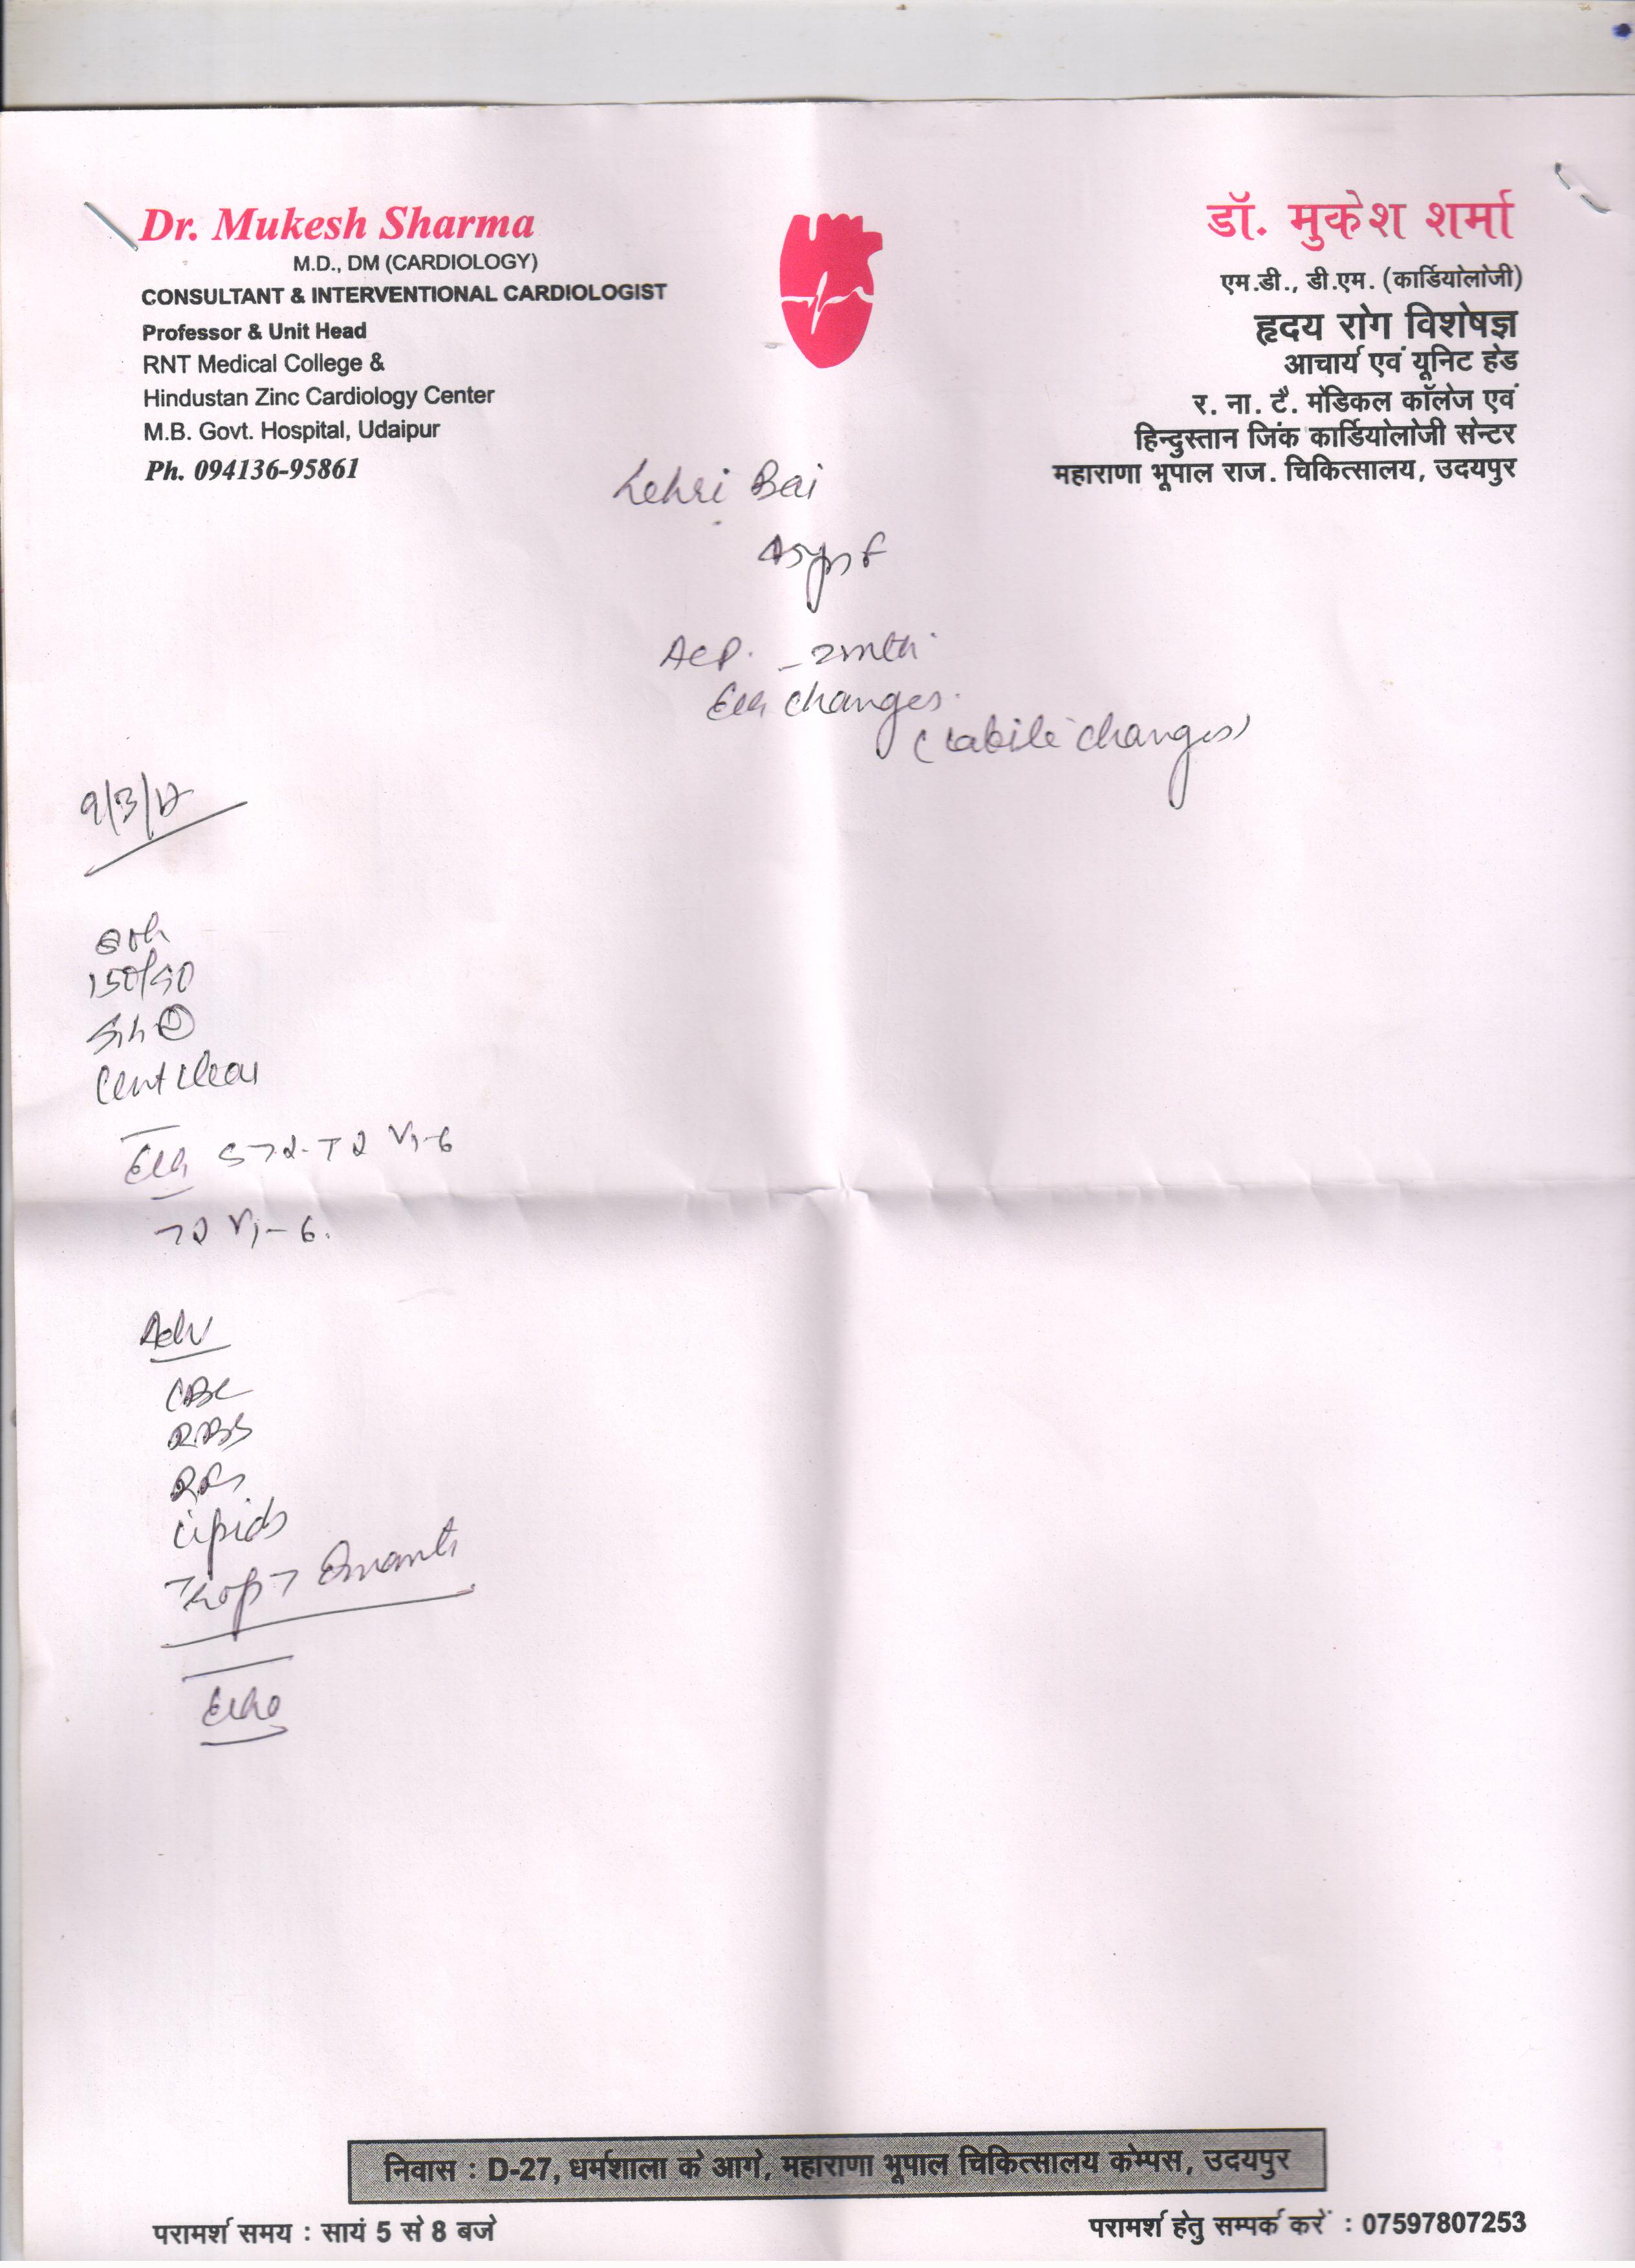 Dr. Mukesh Sharma
M.D., DM (CARDIOLOGY)
CONSULTANT & INTERVENTIONAL CARDIOLOGIST
Professor & Unit Head
RNT Medical College &
Hindustan Zinc Cardiology Center
M.B. Govt. Hospital, Udaipur
Ph. 094136-95861
डॉ. मुकेश शर्मा
एम.डी., डी.एम. (कार्डियोलोजी)
हृदय रोग विशेषज्ञ
आचार्य एवं यूनिट हेड
र. ना. टै. मेडिकल कॉलेज एवं
हिन्दुस्तान जिंक कार्डियोलोजी सेन्टर
महाराणा भूपाल राज. चिकित्सालय, उदयपुर
Lehri Bai
ACP. - 2mth
ECG changes.
(labile changes)
150/90
Chest clear
ECG V1-6
V1-6.
Adv
CBC
RBS
Lipids
TropT
Echo
निवास : D-27, धर्मशाला के आगे, महाराणा भूपाल चिकित्सालय केम्पस, उदयपुर
परामर्श समय : सायं 5 से 8 बजे
परामर्श हेतु सम्पर्क करें : 07597807253